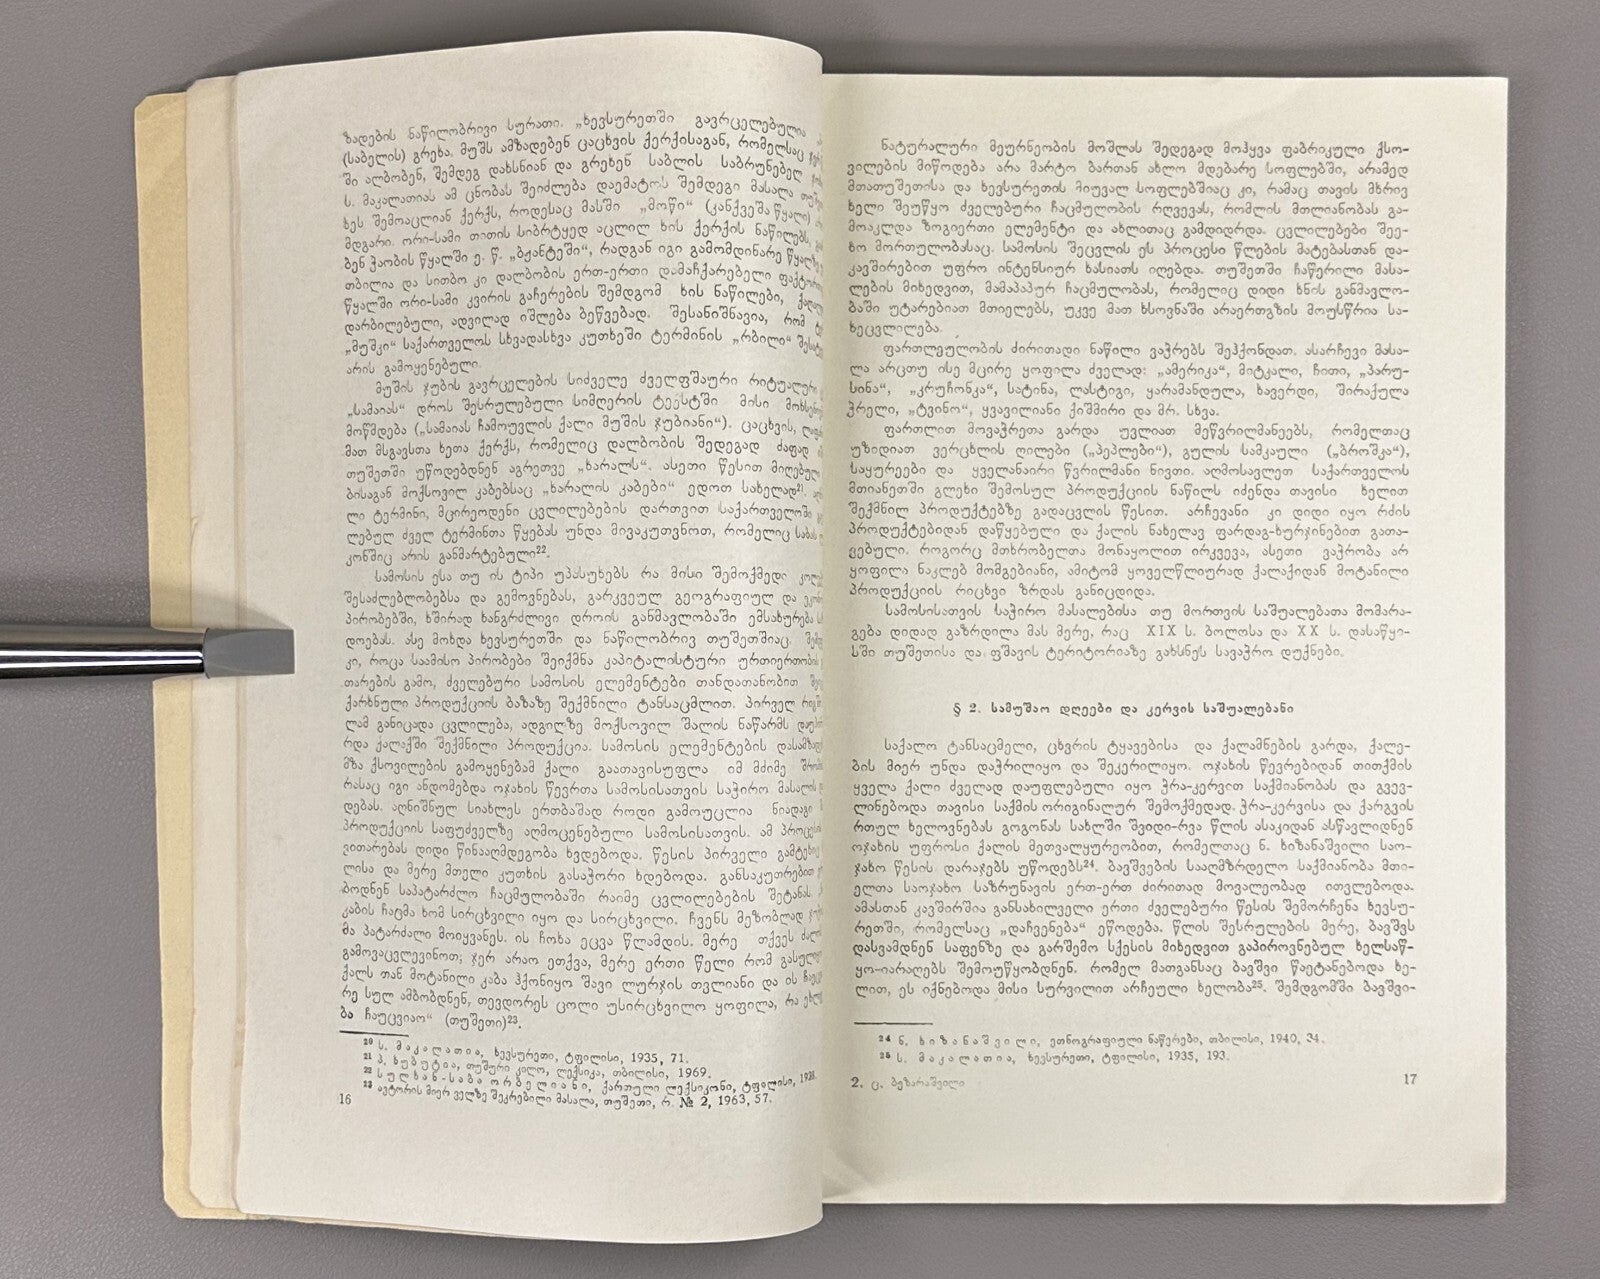 ზადების ნაწილობრივი სურათი. „ხევსურეთში გავრცელებულია
(საბელის) გრეხა. მუშს ამზადებენ ცაცხვის ქერქისაგან, რომელსაც
ში ალბობენ, შემდეგ დახსნიან და გრეხენ საბლის საბრუნებელ
ს. მაკალათიას ამ ცნობას შეიძლება დაემატოს შემდეგი მასალა
ხეს შემოაცლიან ქერქს, როდესაც მასში „მოწი“ (კანქვეშა წყალი)
მდგარი. ორი-სამი თითის სიბრტყედ აცლილ ხის ქერქის ნაწილებს,
ბენ ჭაობის წყალში ე. წ. „ბჟანტეში“, რადგან იგი გამომდინარე წყალზე
თბილია და სითბო კი დალბობის ერთ-ერთი დამაჩქარებელი
წყალში ორი-სამი კვირის გაჩერების შემდგომ ხის ნაწილები,
დარბილებული, ადვილად იშლება ბეწვებად. შესანიშნავია, რომ
„მუშკი“ საქართველოს სხვადასხვა კუთხეში ტერმინის „რბილი“
არის გამოყენებული.
მუშის ჯუბის გავრცელების სიძველე ძველფშაური რიტუალური
„სამაიას“ დროს შესრულებული სიმღერის ტექსტში მისი
მოწმდება („სამაიას ჩამოუვლის ქალი მუშის ჯუბიანი“). ცაცხვის,
მათ მსგავსთა ხეთა ქერქს, რომელიც დალბობის შედეგად ძაფად
თუშეთში უწოდებდნენ აგრეთვე „ხარალს“. ასეთი წესით
ბისაგან მოქსოვილ კაბებსაც „ხარალის კაბები“ ედოთ სახელად²¹.
ლი ტერმინი, მცირეოდენი ცვლილებების დართვით საქართველოში
ლებულ ძველ ტერმინთა წყებას უნდა მივაკუთვნოთ, რომელიც
კონშიც არის განმარტებული²².
სამოსის ესა თუ ის ტიპი უპასუხებს რა მისი შემოქმედი
შესაძლებლობებსა და გემოვნებას, გარკვეულ გეოგრაფიულ და
პირობებში, ხშირად ხანგრძლივი დროის განმავლობაში ემსახურება
დოებას. ასე მოხდა ხევსურეთში და ნაწილობრივ თუშეთშიაც.
კი, როცა საამისო პირობები შეიქმნა კაპიტალისტური ურთიერთობის
თარების გამო, ძველებური სამოსის ელემენტები თანდათანობით
ქარხნული პროდუქციის ბაზაზე შექმნილი ტანსაცმლით. პირველ
ლამ განიცადა ცვლილება, ადგილზე მოქსოვილ შალის ნაწარმს
რდა ქალაქში შექმნილი პროდუქცია. სამოსის ელემენტების
მზა ქსოვილების გამოყენებამ ქალი გაათავისუფლა იმ მძიმე
რასაც იგი ანდომებდა ოჯახის წევრთა სამოსისათვის საჭირო მასალის
დებას. აღნიშნულ სიახლეს ერთბაშად როდი გამოუცლია ნიადაგი
პროდუქციის საფუძველზე აღმოცენებული სამოსისათვის. ამ
ვითარებას დიდი წინააღმდეგობა ხვდებოდა. წესის პირველი
ლისა და მერე მთელი კუთხის გასაჭორი ხდებოდა. განსაკუთრებით
ბოდნენ საპატარძლო ჩაცმულობაში რაიმე ცვლილებების შეტანას.
კაბის ჩაცმა ხომ სირცხვილი იყო და სირცხვილი. ჩვენს მეზობლად
მა პატარძალი მოიყვანეს. ის ჩოხა ეცვა წლამდის. მერე თქვეს
გამოვაცვლევინოთ; ჯერ არაო ეთქვა, მერე ერთი წელი რომ
ქალს თან მოტანილი კაბა ჰქონიყო შავი ლურჯის თვლიანი და ის
რე სულ ამბობდნენ, თევდორეს ცოლი უსირცხვილო ყოფილა, რა
ბა ჩაუცვიაო“ (თუშეთი)²³.
²⁰ ს. მაკალათია, ხევსურეთი, ტფილისი, 1935, 71.
²¹ პ. ხუბუტია, თუშური კილო, ლექსიკა, თბილისი, 1969.
²² სულხან-საბა ორბელიანი, ქართული ლექსიკონი, ტფილისი, 1928.
²³ ავტორის მიერ ველზე შეკრებილი მასალა, თუშეთი, რ. № 2, 1963, 57.
16
ნატურალური მეურნეობის მოშლას შედეგად მოჰყვა ფაბრიკული ქსო-
ვილების მიწოდება არა მარტო ბართან ახლო მდებარე სოფლებში, არამედ
მთათუშეთისა და ხევსურეთის მიუვალ სოფლებშიაც კი, რამაც თავის მხრივ
ხელი შეუწყო ძველებური ჩაცმულობის რღვევას, რომლის მთლიანობას გა-
მოაკლდა ზოგიერთი ელემენტი და ახლითაც გამდიდრდა. ცვლილებები შეე-
ხო მორთულობასაც. სამოსის შეცვლის ეს პროცესი წლების მატებასთან და-
კავშირებით უფრო ინტენსიურ ხასიათს იღებდა. თუშეთში ჩაწერილი მასა-
ლების მიხედვით, მამაპაპურ ჩაცმულობას, რომელიც დიდი ხნის განმავლო-
ბაში უტარებიათ მთიელებს, უკვე მათ ხსოვნაში არაერთგზის მოუსწრია სა-
ხეცვლილება.
ფართლეულობის ძირითადი ნაწილი ვაჭრებს შეჰქონდათ. ასარჩევი მასა-
ლა არცთუ ისე მცირე ყოფილა ძველად: „ამერიკა“, მიტკალი, ჩითი, „პარუ-
სინა“, „კრუჩონკა“, სატინა, ლასტიგი, ყარამანდულა, ხავერდი, შირაქულა
ჭრელი, „ტვინო“, ყვავილიანი ქიშმირი და მრ. სხვა.
ფართლით მოვაჭრეთა გარდა უვლიათ მეწვრილმანეებს, რომელთაც
უზიდიათ ვერცხლის ღილები („პეპლები“), გულის სამკაული („ბროშკა“),
საყურეები და ყველანაირი წვრილმანი ნივთი. აღმოსავლეთ საქართველოს
მთიანეთში გლეხი შემოსულ პროდუქციის ნაწილს იძენდა თავისი ხელით
შექმნილ პროდუქტებზე გადაცვლის წესით. არჩევანი კი დიდი იყო რძის
პროდუქტებიდან დაწყებული და ქალის ნახელავ ფარდაგ-ხურჯინებით გათა-
ვებული. როგორც მთხრობელთა მონაყოლით ირკვევა, ასეთი ვაჭრობა არ
ყოფილა ნაკლებ მომგებიანი, ამიტომ ყოველწლიურად ქალაქიდან მოტანილი
პროდუქციის რიცხვი ზრდას განიცდიდა.
სამოსისათვის საჭირო მასალებისა თუ მორთვის საშუალებათა მომარა-
გება დიდად გაზრდილა მას მერე, რაც XIX ს. ბოლოსა და XX ს. დასაწყი-
სში თუშეთისა და ფშავის ტერიტორიაზე გახსნეს სავაჭრო დუქნები.
§ 2. სამუშაო დღეები და კერვის საშუალებანი
საქალო ტანსაცმელი, ცხვრის ტყავებისა და ქალამნების გარდა, ქალე-
ბის მიერ უნდა დაჭრილიყო და შეკერილიყო. ოჯახის წევრებიდან თითქმის
ყველა ქალი ძველად დაუფლებული იყო ჭრა-კერვით საქმიანობას და გვევ-
ლინებოდა თავისი საქმის ორიგინალურ შემოქმედად. ჭრა-კერვისა და ქარგვის
რთულ ხელოვნებას გოგონას სახლში შვიდი-რვა წლის ასაკიდან ასწავლიდნენ
ოჯახის უფროსი ქალის მეთვალყურეობით, რომელთაც ნ. ხიზანაშვილი საო-
ჯახო წესის დარაჯებს უწოდებს²⁴. ბავშვების სააღმზრდელო საქმიანობა მთი-
ელთა საოჯახო საზრუნავის ერთ-ერთ ძირითად მოვალეობად ითვლებოდა.
ამასთან კავშირშია განსახილველი ერთი ძველებური წესის შემორჩენა ხევსუ-
რეთში, რომელსაც „დაჩვენება“ ეწოდება. წლის შესრულების მერე, ბავშვს
დასვამდნენ საფენზე და გარშემო სქესის მიხედვით გაპიროვნებულ ხელსაწ-
ყო-იარაღებს შემოუწყობდნენ. რომელ მათგანსაც ბავშვი წაეტანებოდა ხე-
ლით, ეს იქნებოდა მისი სურვილით არჩეული ხელობა²⁵. შემდგომში ბავშვი-
²⁴ ნ. ხიზანაშვილი, ეთნოგრაფიული ნაწერები, თბილისი, 1940, 34.
²⁵ ს. მაკალათია, ხევსურეთი, ტფილისი, 1935, 193.
2. ც. ბეზარაშვილი
17